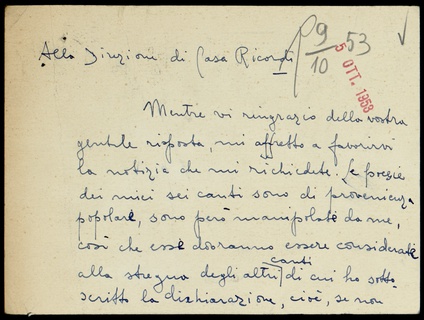 Alla Direzione di Casa Ricordi
9/10 53
5 OTT. 1953
Mentre vi ringrazio della vostra
gentile risposta, mi affretto a favorirvi
la notizia che mi richiedete. Le poesie
dei miei sei canti sono di provenienza
popolare, sono però manipolate da me,
così che esse dovranno essere considerate
canti
alla stregua degli altri di cui ho sotto-
scritto la dichiarazione, cioè, se non